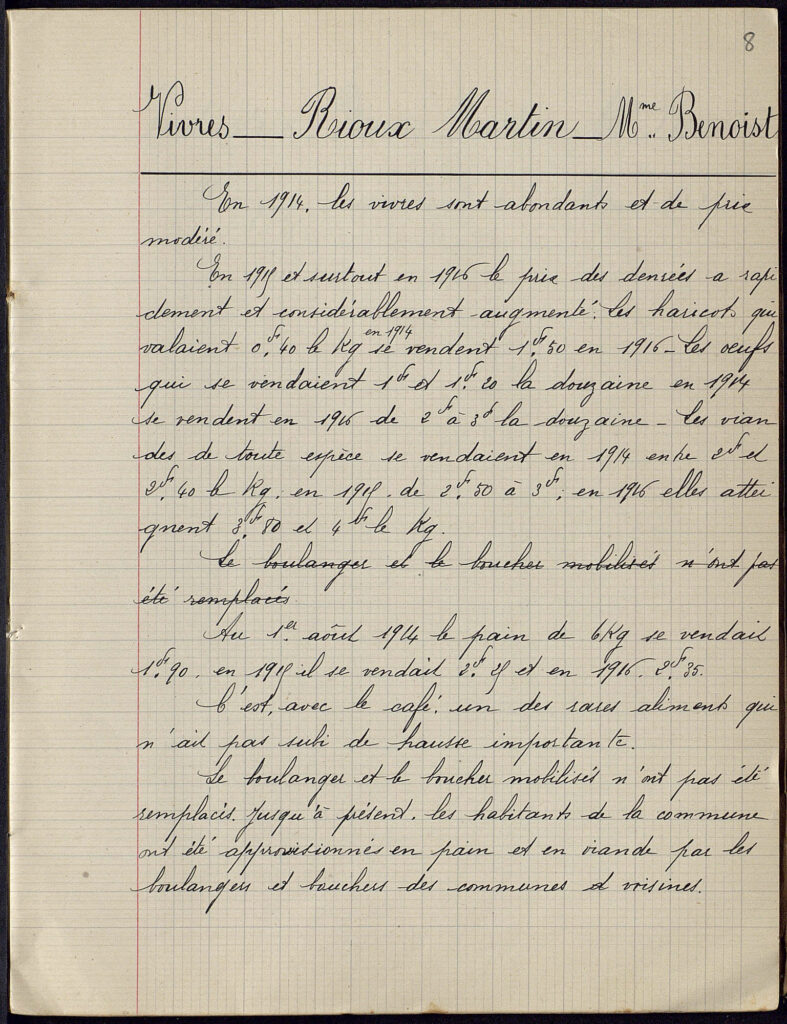 8
Vivres — Rioux Martin — Mme. Benoist
En 1914, les vivres sont abondants et de prix
modéré.
En 1915 et surtout en 1916 le prix des denrées a rapi
dement et considérablement augmenté. Les haricots qui
valaient 0fr.40 le Kg en 1914 se vendent 1fr.50 en 1916 - Les oeufs
qui se vendaient 1fr et 1fr.20 la douzaine en 1914
se vendent en 1916 de 2fr à 3f la douzaine - Les vian
des de toute espèce se vendaient en 1914 entre 2fr et
2fr.40 le Kg; en 1915. de 2fr.50 à 3fr; en 1916 elles attei
gnent 3fr.80 et 4fr le Kg.
Le boulanger et le boucher mobilisés n'ont pas
été remplacés
Au 1er août 1914 le pain de 6Kg se vendait
1fr.90. en 1915 il se vendait 2fr.25 et en 1916. 2fr.35.
C'est, avec le café, un des rares aliments qui
n'ait pas subi de hausse importante.
Le boulanger et le boucher mobilisés n'ont pas été
remplacés. Jusqu'à présent, les habitants de la commune
ont été approvisionnés en pain et en viande par les
boulangers et bouchers des communes d voisines.